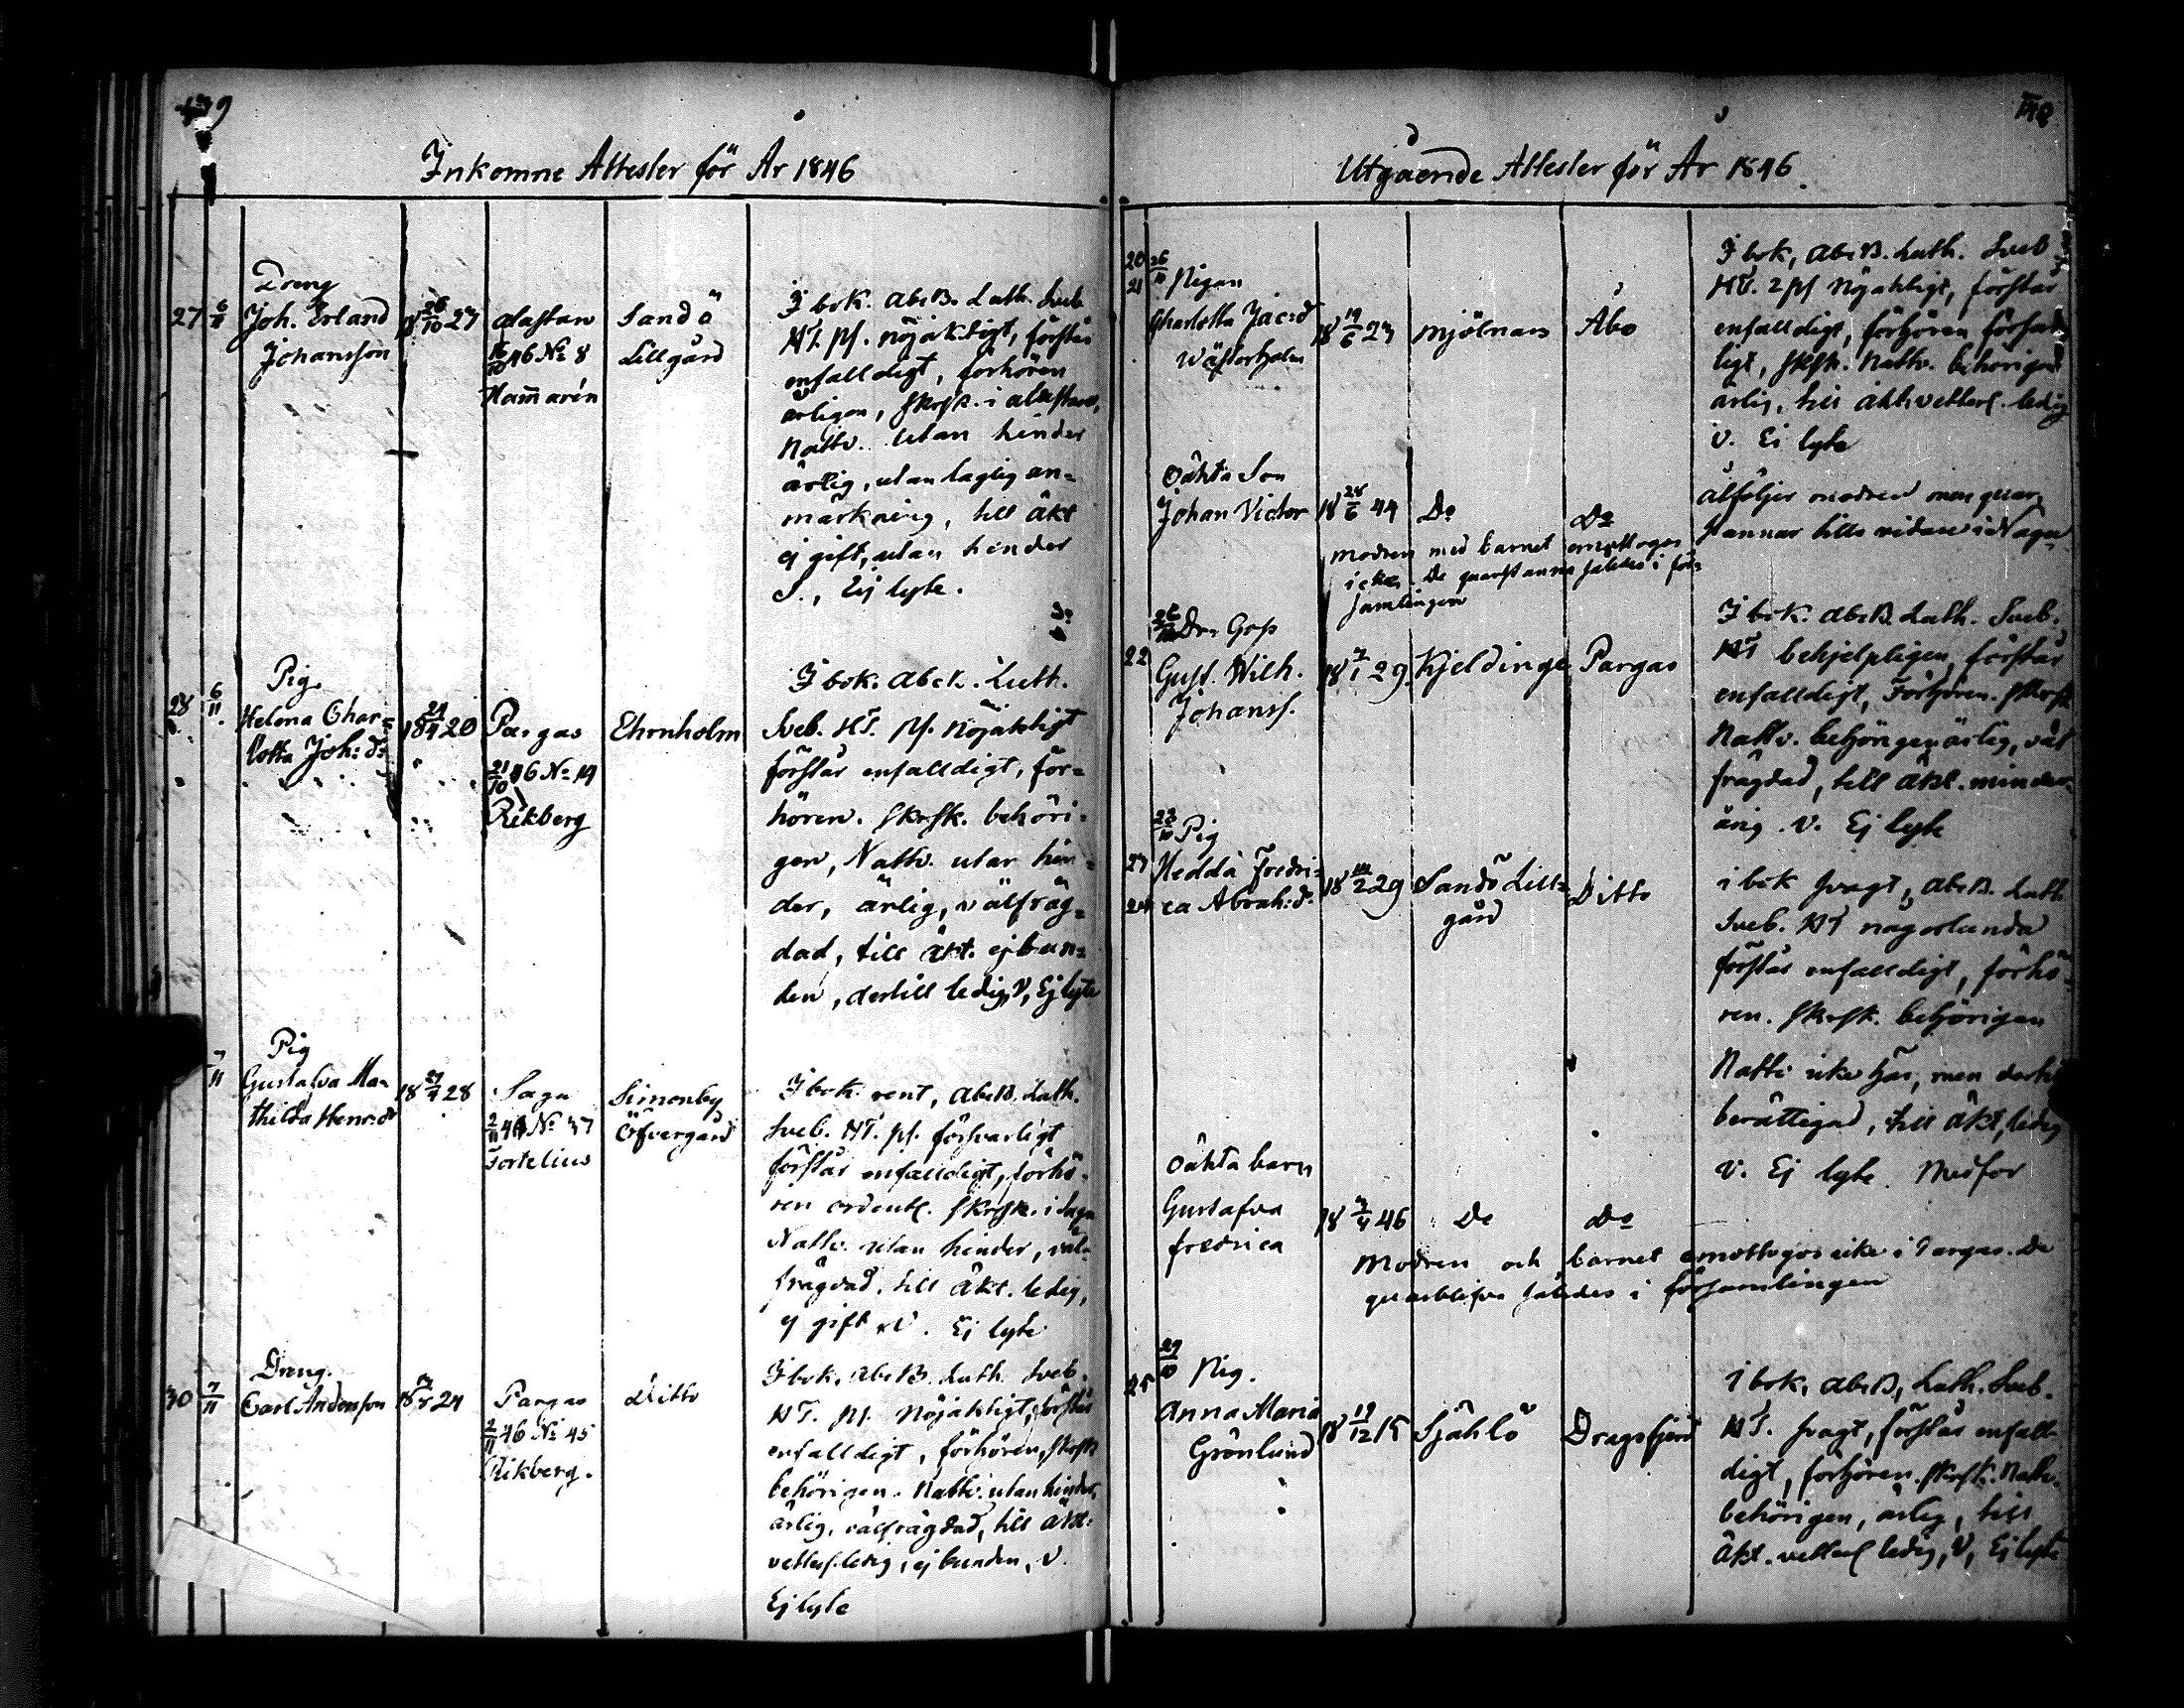 Inkomne Attester för År 1846
27 6/11 Dreng
Joh. Erland
Johansson
18 26/10 27
Alastaro
16/10 46 No 8
Hammarén
Sandö
Lillgård
I bok. AbcB. Luth. Sveb.
HT. pf. nöjaktigt, förstår
enfalldigt, förhören
årligen, skrsk. i Alastaro,
Nattv. utan hinder
ärlig, utan laglig an=
märkning, till äkt
ej gift, utan hinder
S., Ej lyte.
28 6/11 Pig.
Helena Char=
lotta Joh:dr
18 29/4 20
Pargas
21/10 46 No 14
Rikberg
Ehrnholm
I bok. Abck. Luth.
Sveb. HT. pf. nöjaktigt
förstår enfalldigt, för=
hören. skrsk. behöri=
gen, Nattv. utan hin=
der, ärlig, välfräg=
dad, till äkt. ej bun=
den, dertill ledig, V, Ej lyte
7/11 Pig
Gustafva Ma=
thilda Henr:dr
18 27/4 28
Sagu
2/11 46 No 37
Fortelius
Simonby
Öfvergård
I bok. rent, AbcB. Luth.
Sveb. HT. pf. försvarligt
förstår enfalldigt, förhö=
ren ordentl. skrsk. i Sagu
Nattv. utan hinder, väl=
frägdad, till äkt. ledig,
ej gift, V. Ej lyte
30 7/11 Dreng.
Carl Andersson
24
Pargas
2/11 46 No 45
Rikberg.
Ditto
I bok, AbcB. Luth. Sveb.
HT. pf. Nöjaktigt, förstår
enfalldigt, förhören, skrsk
behörigen. Nattv. utan hinder,
ärlig, välfrägdad, till äkt.
vetterl. ledig, ej bunden, V.
Ej lyte
Utgående Attester för År 1846.
20
21 26/10 Pigan
Charlotta Jac:dr
Wästerholm
18 19/6 23
Mjölnars
Åbo
I bok, AbcB. Luth. Sveb.
HT. 2 pf nöjaktigt, förstår
enfalldigt, förhören försvar
ligt, skrsk. Nattv. behörigen
ärlig, till äkt vetterl. ledig
V. Ej lyte
Oäkta Son
Johan Victor
18 28/6 44
Do
Do
åtföljer modren men quar
stannar tills vidare i Nagu
Modren med barnet emottogos
icke. De quarstanna således i för=
samlingen
22 26/10 Dr. Goss
Gust. Wilh.
Johanss.
18 7/1 29.
Kjeldinge
Pargas
I bok. AbcB. Luth. Sveb.
HT behjelpligen, förstår
enfalldigt, Förhören. skrsk
Nattv. behörigen ärlig, väl
frägdad, till äkt. minder=
årig. V. Ej lyte
23
24 28/10 Pig
Hedda Fredri=
ca Abrah:dr
29
Sandö Lill=
gård
Ditto
i bok svagt, AbcB. Luth.
Sveb. HT någorlunda
förstår enfalldigt, förhö=
ren. skrsk. behörigen
Nattv. icke här, men dertill
berättigad, till äkt, ledig
V. Ej lyte. Medför
Oäkta barn
Gustafva
Fredrica
18 3/4 46
Do
Do
Modren och barnet emottogos icke i Pargas. De
quarblifva således i församlingen
25 29/10 Pig.
Anna Maria
Grönlund
18 19/12 15
Själilö
Dragsfjerd
I bok, AbcB, Luth. Sveb.
HT. svagt, förstår enfall=
digt, förhören. skrsk. Nattv.
behörigen, ärlig, till
äkt. vetterl ledig, V, Ej lyte